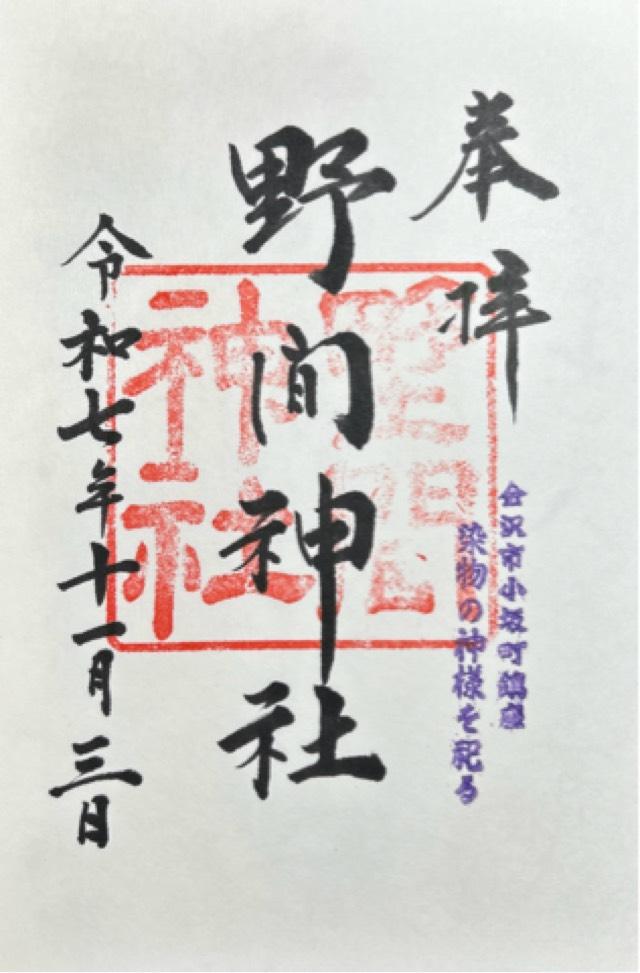 奉拝
金沢市小坂町鎮座
染物の神様を祀る
野間神社
野間神社
令和七年十一月三日